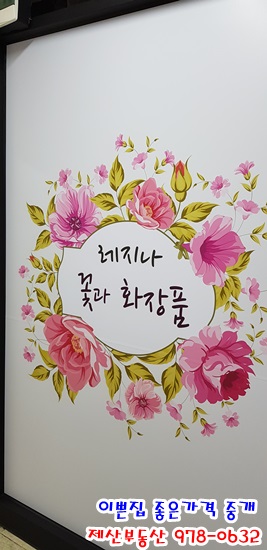 레지나
꽃과 화장품
이쁜집 좋은가격 중개
제산부동산 978-0632